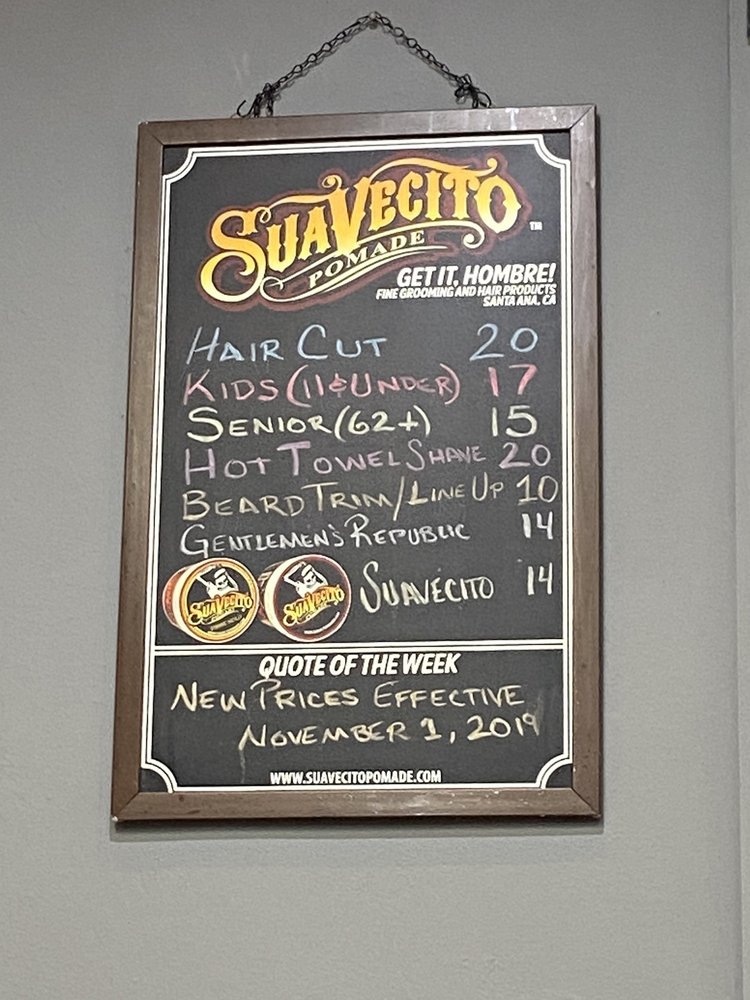 SUAVECITO™
POMADE
GET IT, HOMBRE!
FINE GROOMING AND HAIR PRODUCTS
SANTA ANA, CA
HAIR CUT 20
KIDS (11 & UNDER) 17
SENIOR (62+) 15
HOT TOWEL SHAVE 20
BEARD TRIM/LINE UP 10
GENTLEMEN'S REPUBLIC 14
SUAVECITO SUAVECITO SUAVECITO 14
QUOTE OF THE WEEK
NEW PRICES EFFECTIVE
NOVEMBER 1, 2019
WWW.SUAVECITOPOMADE.COM